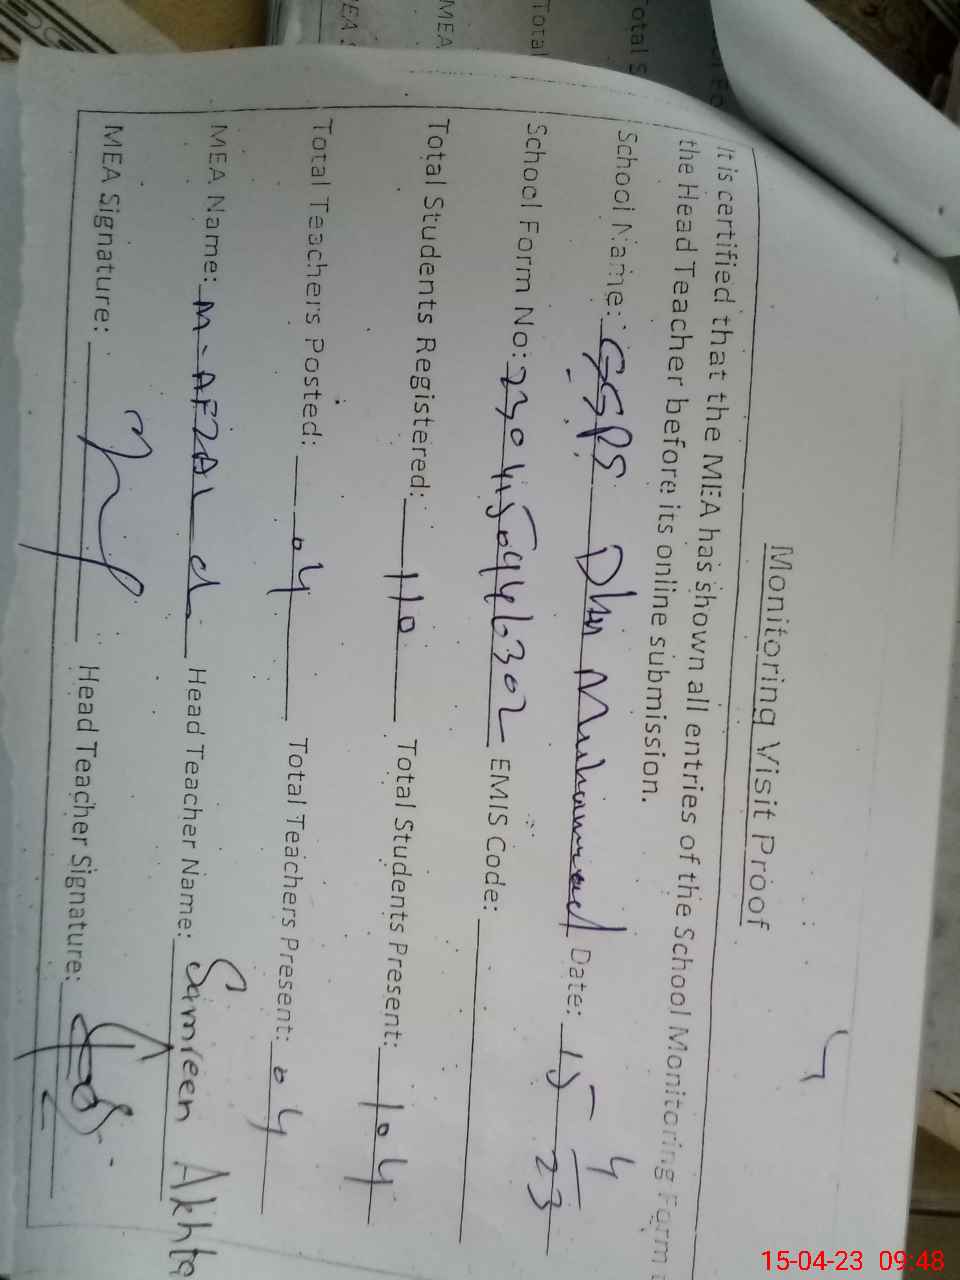 Monitoring Visit Proof
It is certified that the MEA has shown all entries of the School Monitoring Form
the Head Teacher before its online submission.
School Name: GGPS Dhu Muhammad Date: 15/4/23
School Form No: 2304150446302 EMIS Code:
Total Students Registered: 110 Total Students Present: 104
Total Teachers Posted: 04 Total Teachers Present: 04
MEA Name: M-AFZAL Head Teacher Name: Samreen Akhta
MEA Signature: Head Teacher Signature:
15-04-23 09:48